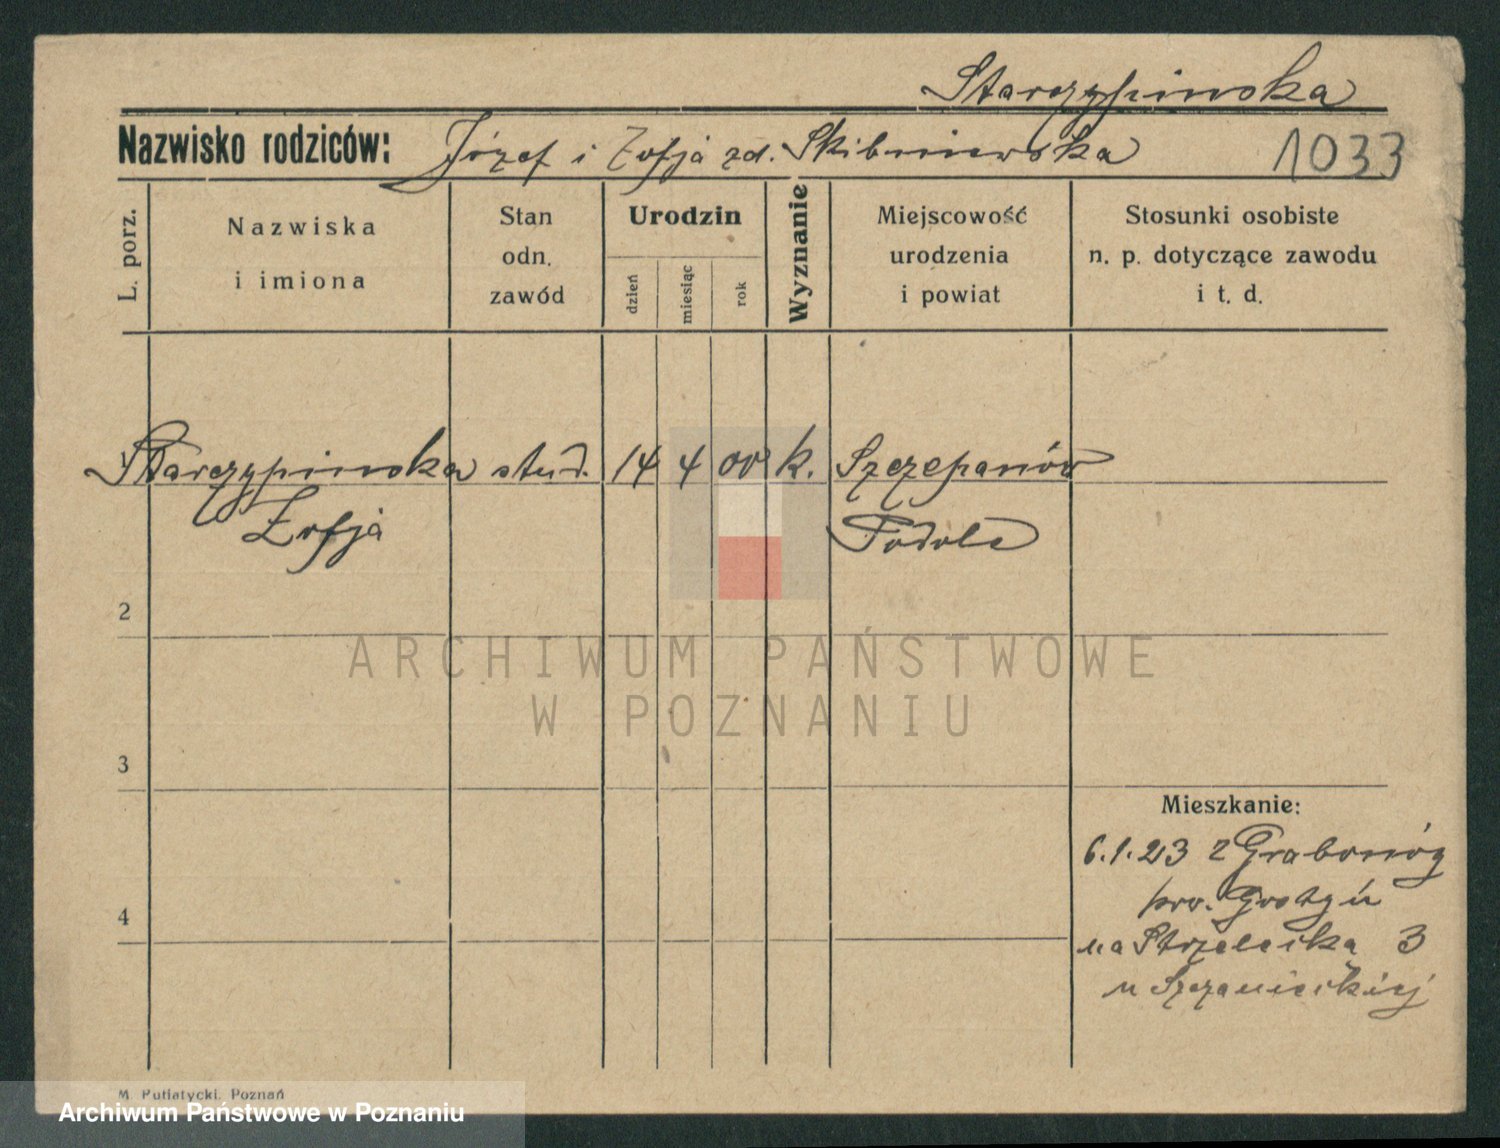 Starczypinska
Nazwisko rodziców: Józef i Zofja zd. Skibniewska 1033
L. porz.
Nazwiska
i imiona
Stan
odn.
zawód
Urodzin
dzień
miesiąc
rok
Wyznanie
Miejscowość
urodzenia
i powiat
Stosunki osobiste
n. p. dotyczące zawodu
i t. d.
Starczypinska stud. 14 4 00 k. Szczepanów
Zofja Podole
2
ARCHIWUM PAŃSTWOWE
W POZNANIU
3
Mieszkanie:
6.1.23 z Grabonóg
pow. Gostyń
4
na Strzelecką 3
u Szczanieckiej
M Putiatycki, Poznań
Archiwum Państwowe w Poznaniu